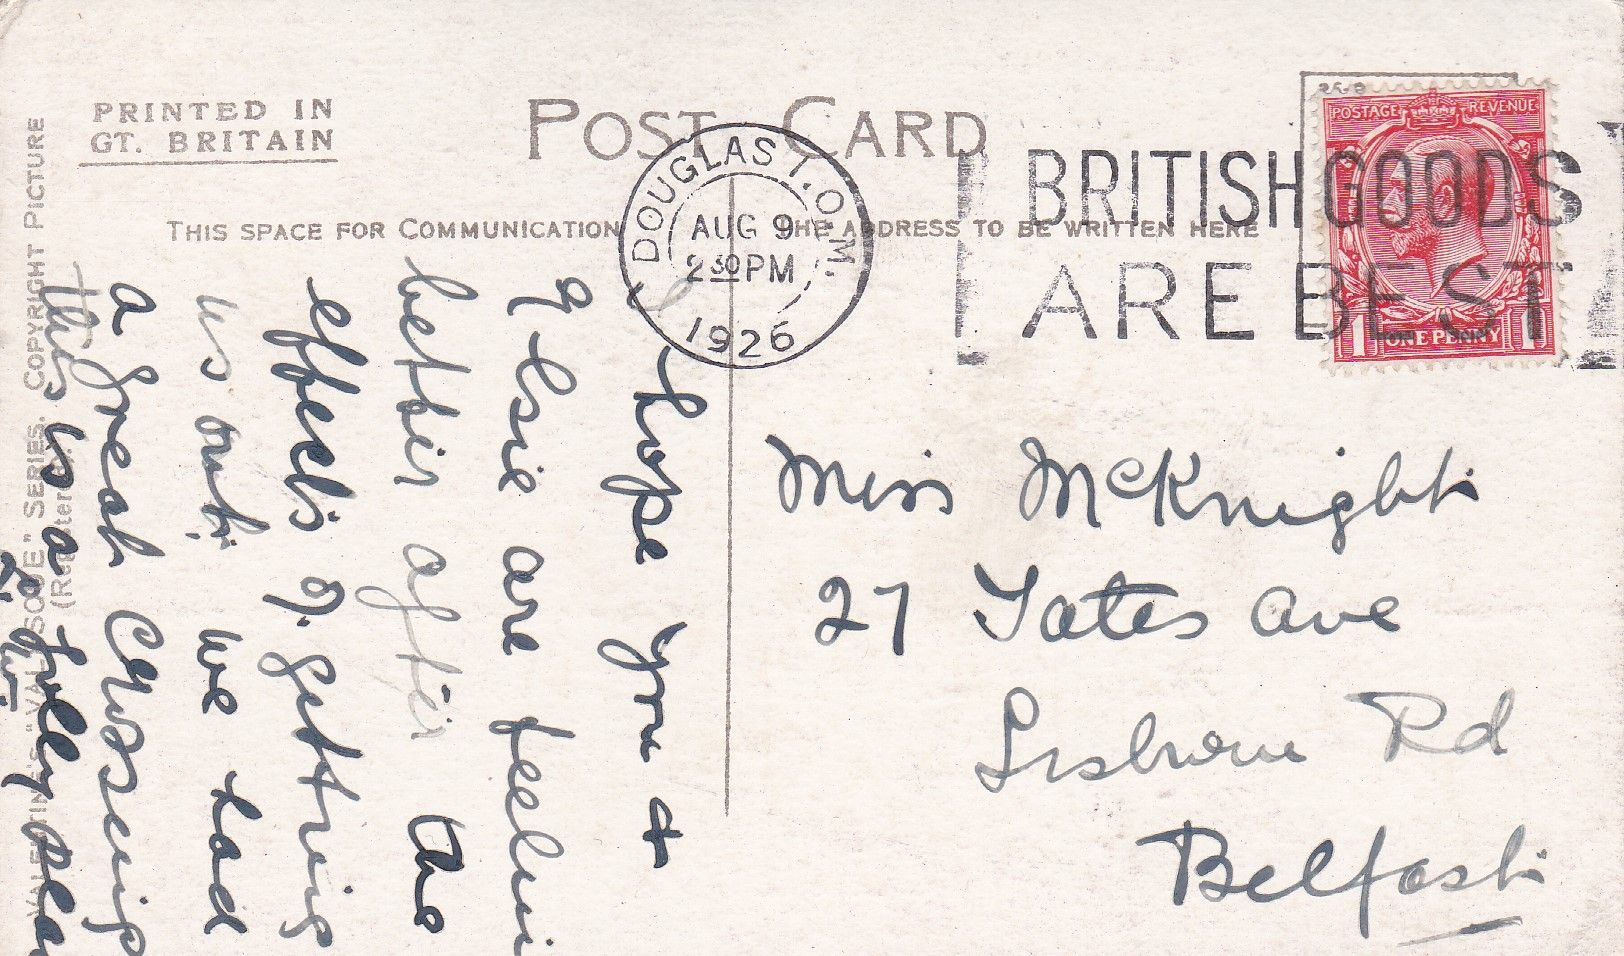 PRINTED IN
GT. BRITAIN
POST CARD
THIS SPACE FOR COMMUNICATION
THE ADDRESS TO BE WRITTEN HERE
DOUGLAS I.O.M.
AUG 9
2 30 PM
1926
BRITISH GOODS
ARE BEST
POSTAGE REVENUE
1 ONE PENNY 1
VALENTINE'S "VALESQUE" SERIES. COPYRIGHT PICTURE
(Registered).
I hope you &
Elsie are feelin
better after the
effects of getting
us out. We had
a great crossing
this is a jolly pla
Miss McKnight
27 Yates Ave
Lisburn Rd
Belfast